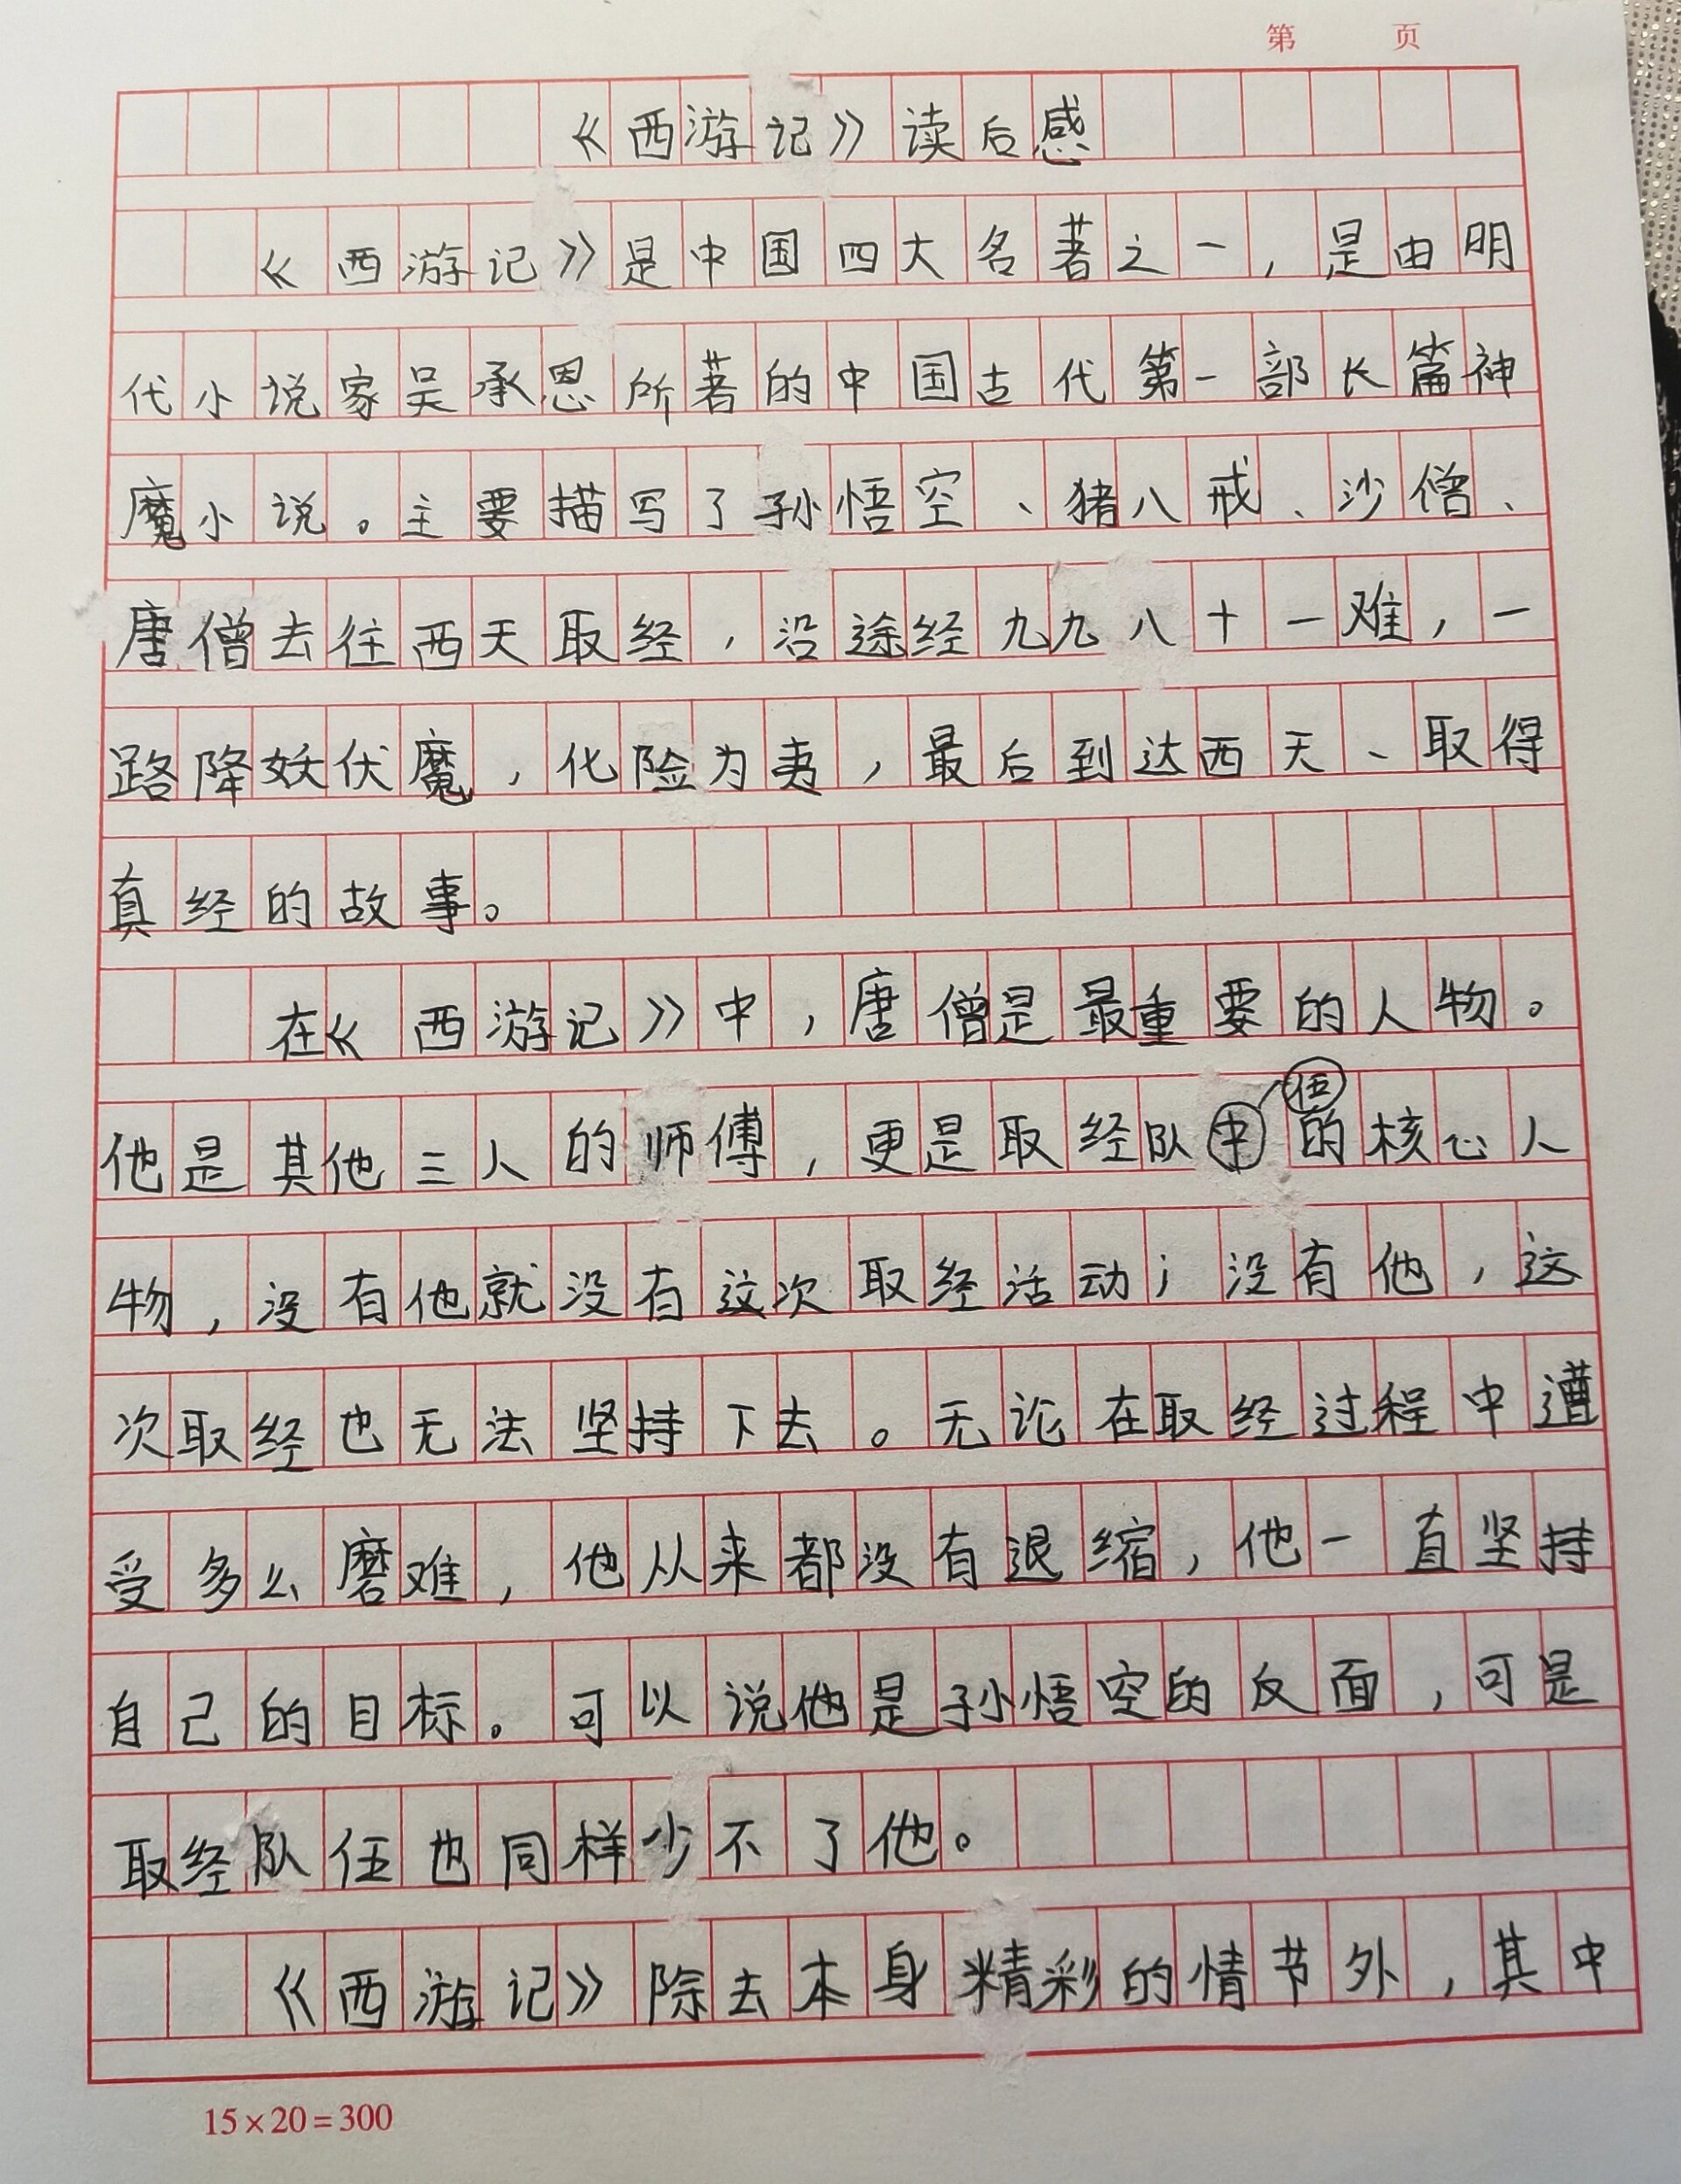 第 页
《西游记》读后感
《西游记》是中国四大名著之一，是由明
代小说家吴承恩所著的中国古代第一部长篇神
魔小说。主要描写了孙悟空、猪八戒、沙僧、
唐僧去往西天取经，沿途经九九八十一难，一
路降妖伏魔，化险为夷，最后到达西天、取得
真经的故事。
在《西游记》中，唐僧是最重要的人物。
伍
他是其他三人的师傅，更是取经队中的核心人
物，没有他就没有这次取经活动；没有他，这
次取经也无法坚持下去。无论在取经过程中遭
受多么磨难，他从来都没有退缩，他一直坚持
自己的目标。可以说他是孙悟空的反面，可是
取经队伍也同样少不了他。
《西游记》除去本身精彩的情节外，其中
15×20=300